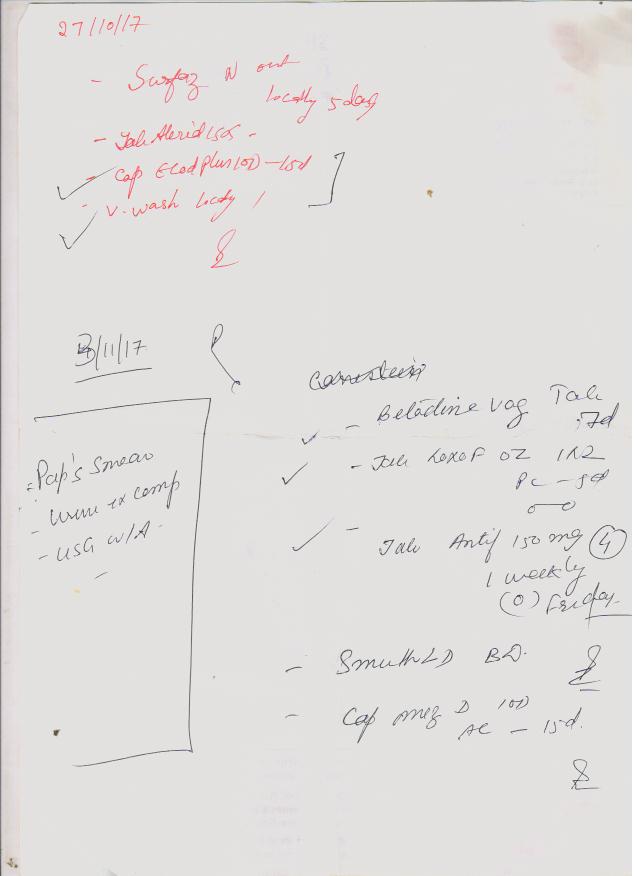 27/10/17
- Surfaz N oint
locally 5 days
- Tab Alerid 15
- Cap Ecod Plus 10D - 15d
- V-wash locally
3/11/17
- Pap's Smear
- Urine ex comp
- USG W/A
- Betadine Vag Tab
7d
- Tab Loxof OZ 1x2
PC - 5d
- Tab Antif 150 mg (4)
1 weekly
(0) Friday
- Smuth LD BD.
- Cap Meg D 10D
AC - 15d.